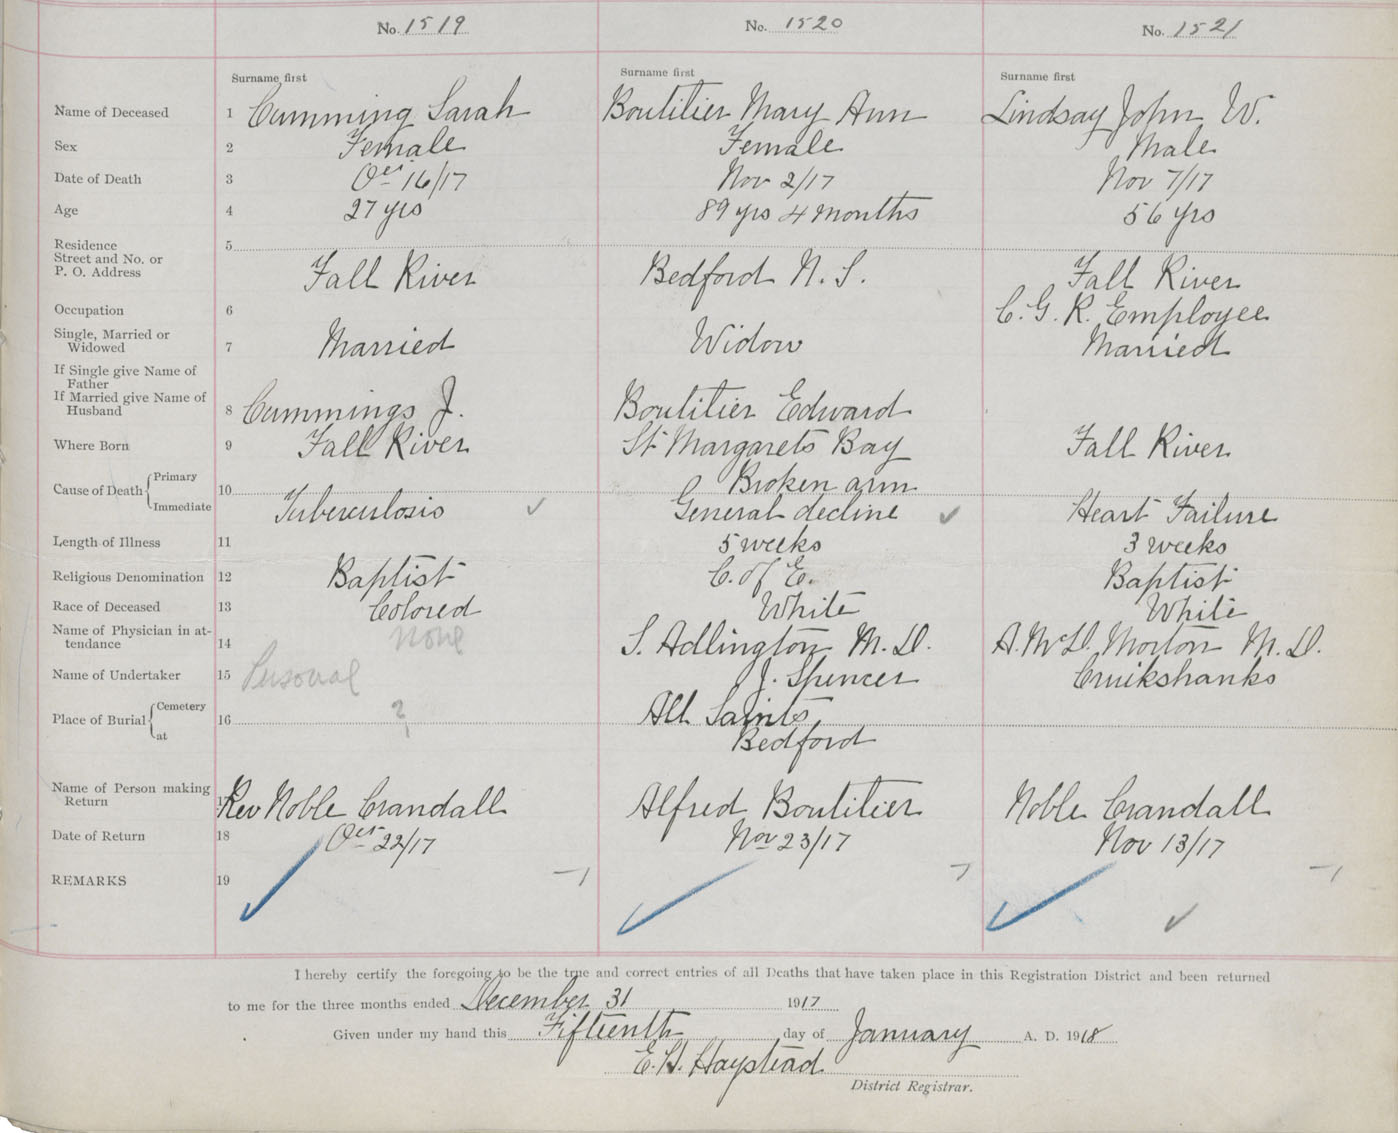 No. 1519 No. 1520 No. 1521
Surname first Surname first Surname first
Name of Deceased 1 Cumming Sarah Boutilier Mary Ann Lindsay John W.
Sex 2 Female Female Male
Date of Death 3 Oct 16/17 Nov 2/17 Nov 7/17
Age 4 27 yrs 89 yrs 4 months 56 yrs
Residence 5
Street and No. or
P. O. Address Fall River Bedford N. S. Fall River
Occupation 6 C. G. R. Employee
Single, Married or
Widowed 7 Married Widow Married
If Single give Name of
Father
If Married give Name of
Husband 8 Cummings J. Boutilier Edward
Where Born 9 Fall River St Margarets Bay Fall River
Cause of Death Primary 10 Broken arm
Immediate Tuberculosis ✓ General decline ✓ Heart Failure
Length of Illness 11 5 weeks 3 weeks
Religious Denomination 12 Baptist C. of E. Baptist
Race of Deceased 13 Colored White White
Name of Physician in at-
tendance 14 none S. Adlington M. D. A. McD. Morton M. D.
Name of Undertaker 15 Personal J. Spencer Cruikshanks
Place of Burial Cemetery 16 ? All Saints
at Bedford
Name of Person making
Return Rev Noble Crandall Alfred Boutilier Noble Crandall
Date of Return 18 Oct 22/17 Nov 23/17 Nov 13/17
REMARKS 19
I hereby certify the foregoing to be the true and correct entries of all Deaths that have taken place in this Registration District and been returned
to me for the three months ended December 31 1917
Given under my hand this Fifteenth day of January A. D. 1918
E. H. Haystead
District Registrar.